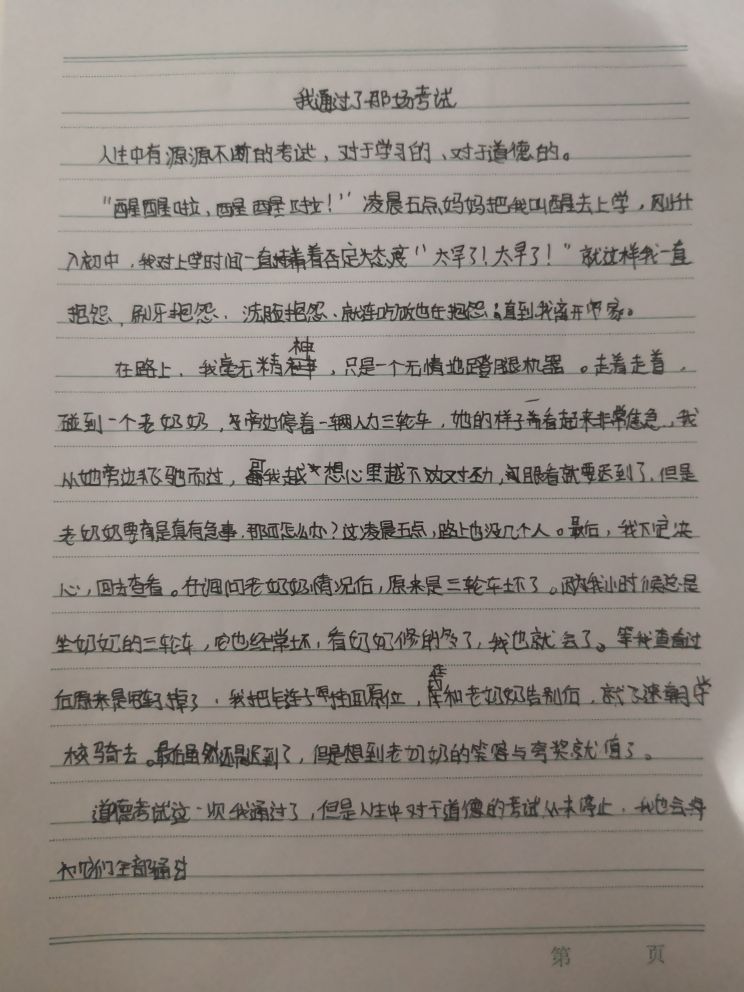 我通过了那场考试
人生中有源源不断的考试，对于学习的、对于道德的。
“醒醒啦，醒醒啦！”凌晨五点妈妈把我叫醒去上学，刚升
入初中，我对上学时间一直持着否定态度“太早了！太早了！”就这样我一直
抱怨，刷牙抱怨、洗脸抱怨、就连吃饭也在抱怨；直到我离开家。
在路上，我毫无精神，只是一个无情地蹬腿机器。走着走着，
碰到一个老奶奶，旁边停着一辆人力三轮车，她的样子看起来非常焦急，我
从她旁边飞驰而过，可我越想心里越不对劲，眼看就要迟到了，但是
老奶奶要是真有急事，那可怎么办？这凌晨五点，路上也没几个人。最后，我下定决
心，回去查看。在询问老奶奶情况后，原来是三轮车坏了。因为我小时候总是
坐奶奶的三轮车，它也经常坏，看奶奶修的多了，我也就会了。等我查看过
后原来是链子掉了，我把链子挂回原位，在和老奶奶告别后，就飞速朝学
校骑去。最后虽然还是迟到了，但是想到老奶奶的笑容与夸奖就值了。
道德考试这一次我通过了，但是人生中对于道德的考试从未停止，我也会将
它们全部通过